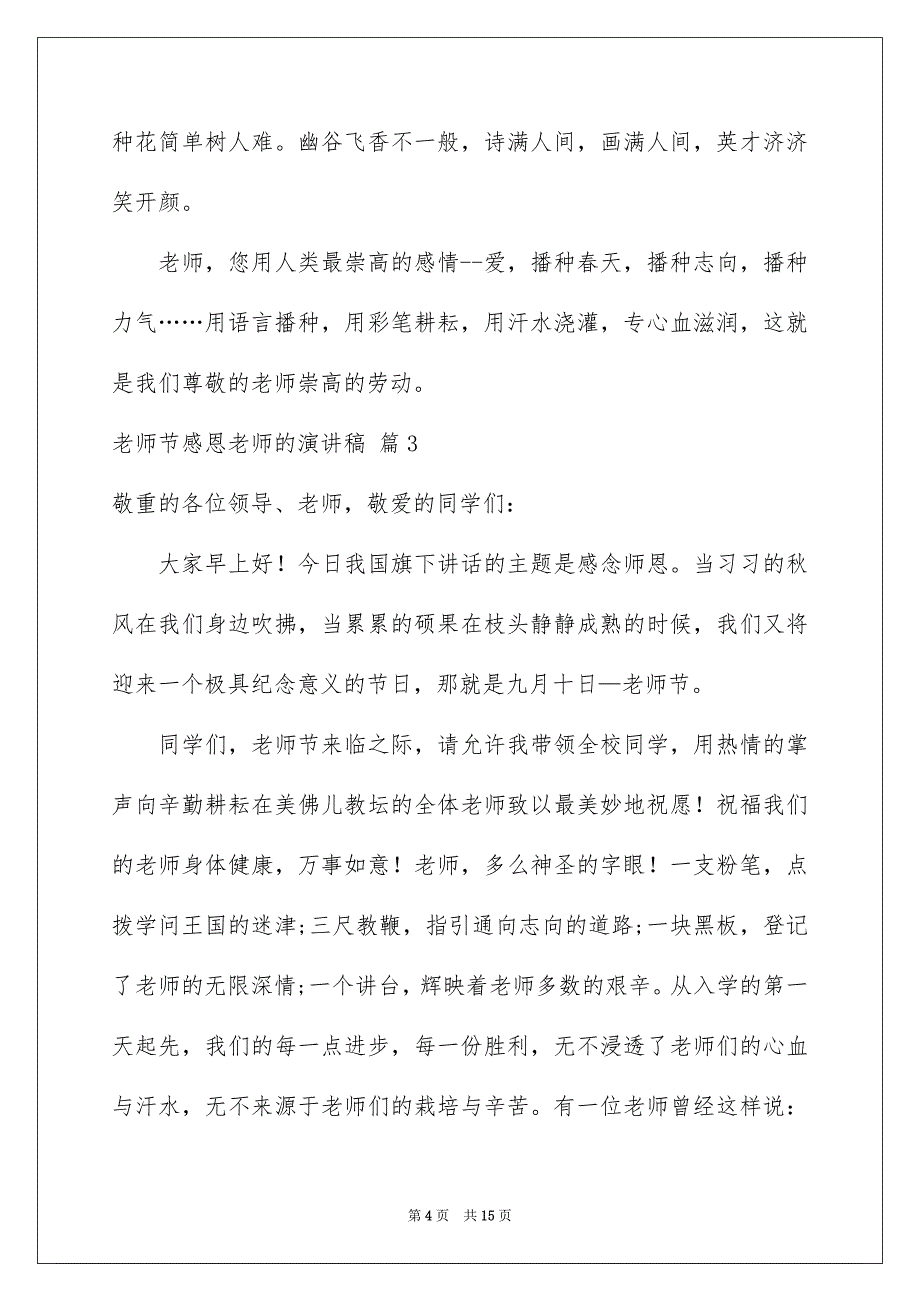 种花简单树人难。幽谷飞香不一般，诗满人间，画满人间，英才济济
笑开颜。
老师，您用人类最崇高的感情--爱，播种春天，播种志向，播种
力气……用语言播种，用彩笔耕耘，用汗水浇灌，专心血滋润，这就
是我们尊敬的老师崇高的劳动。
老师节感恩老师的演讲稿 篇3
敬重的各位领导、老师，敬爱的同学们：
大家早上好！今日我国旗下讲话的主题是感念师恩。当习习的秋
风在我们身边吹拂，当累累的硕果在枝头静静成熟的时候，我们又将
迎来一个极具纪念意义的节日，那就是九月十日—老师节。
同学们，老师节来临之际，请允许我带领全校同学，用热情的掌
声向辛勤耕耘在美佛儿教坛的全体老师致以最美妙地祝愿！祝福我们
的老师身体健康，万事如意！老师，多么神圣的字眼！一支粉笔，点
拨学问王国的迷津;三尺教鞭，指引通向志向的道路;一块黑板，登记
了老师的无限深情;一个讲台，辉映着老师多数的艰辛。从入学的第一
天起先，我们的每一点进步，每一份胜利，无不浸透了老师们的心血
与汗水，无不来源于老师们的栽培与辛苦。有一位老师曾经这样说：
第 4 页 共 15 页